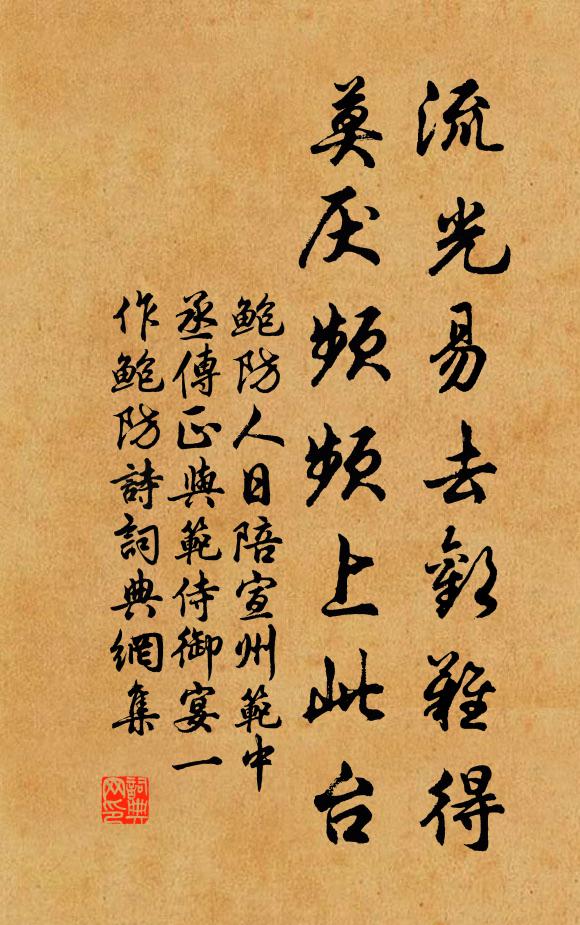 流光易去歡難得
莫厌頻頻上此台
鲍防人日陪宣州範中
丞傳正與範侍御宴一
作鲍防詩詞典網集
詞典
网印